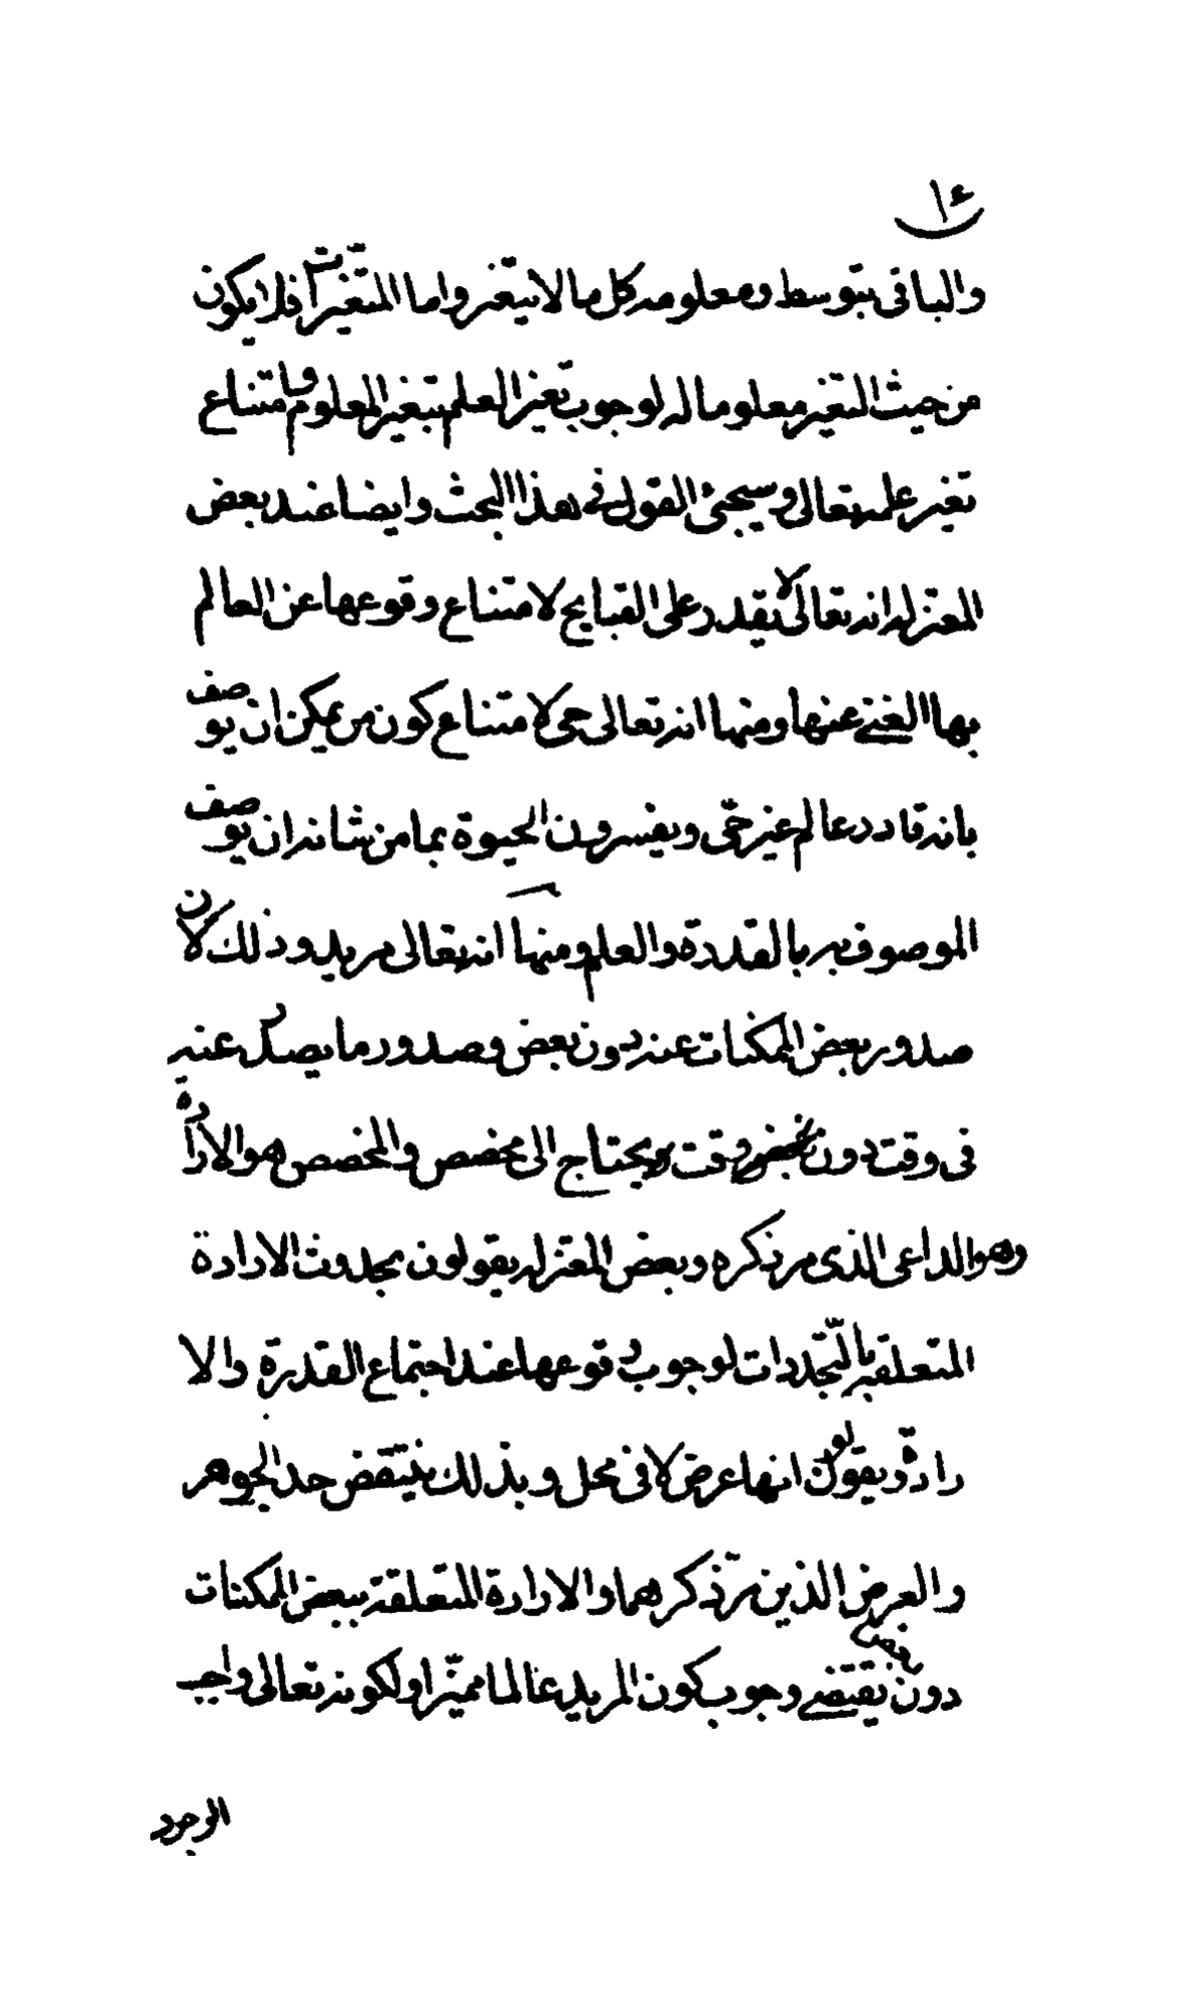 ١٤
والباقى بتوسط ومعلومه كل ما لا يتغير واما المتغيرات فلا يكون
من حيث التغير معلوما له لوجوب تغير العلم بتغير المعلوم وامتناع
تغير علمه تعالى وسيجئ القول فى هذا البحث وايضا عند بعض
المعتزله انه تعالى لا يقدر على القبايح لامتناع وقوعها عن العالم
بها الغنى عنها ومنها انه تعالى حى لامتناع كون من يمكن ان يوصف
بانه قادر عالم غير حى ويفسرون الحيوة بما من شانه ان يوصف
الموصوف به بالقدرة والعلم ومنها انه تعالى مريد وذلك لان
صدور بعض الممكنات عنه دون بعض وصدور ما يصدر عنه
فى وقت دون وقت يحتاج الى مخصص والمخصص هو الارادة
وهو الداعى الذى مر ذكره وبعض المعتزله يقولون بحدوث الارادة
المتعلقه بالمتجددات لوجوب وقوعها عند اجتماع القدرة والا
رادة ويقولون انها عرض لا فى محل وبذلك ينتقض حد الجوهر
والعرض الذين مر ذكرهما والارادة المتعلقة ببعض الممكنات
دون بعض يقتضى وجوب كون المريد عالما مميزا ولكونه تعالى واجب
الوجود